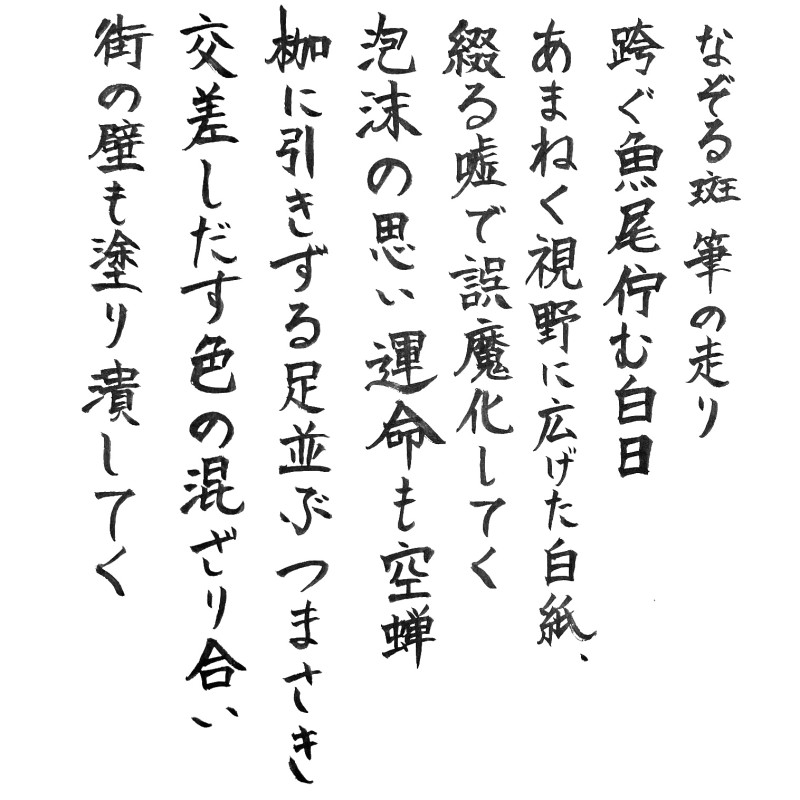 なぞる斑 筆の走り
跨ぐ魚尾佇む白日
あまねく視野に広げた白紙、
綴る嘘で誤魔化してく
泡沫の思い 運命も空蝉
枷に引きずる足並ぶつまさき
交差しだす色の混ざり合い
街の壁も塗り潰してく